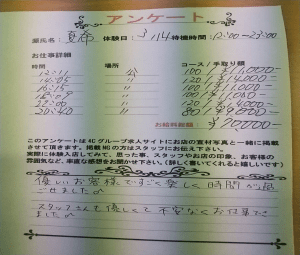 アンケート
源氏名: 真希 体験日: 3/14 待機時間: 12:00~23:00
お仕事詳細
時間 場所 コース / 手取り額
12:11 公 100 / ¥11,000-
120 / ¥14,000-
16:15 〃 100 / ¥11,000-
〃 100 / ¥11,000-
〃 120 / ¥14,000-
20:40 〃 80 / ¥9,000-
お給料総額 ¥70000-
このアンケートは4Cグループ求人サイトにお店の宣材写真と一緒に掲載させて頂きます。掲載NGの方はスタッフにお伝え下さい。
実際に体験入店してみて、思った事、スタッフやお店の印象、お客様の雰囲気など、率直な感想をお聞かせ下さい。(詳しく書いてくれると嬉しいです)
優しいお客様ですごく楽しく時間が過
ごせました。
スタッフさんも優しくて不安なくお仕事で
きました。